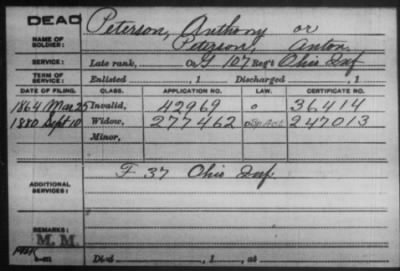 DEAD
Peterson, Anthony or
NAME OF SOLDIER:
Peterson, Anton
SERVICE: Late rank, Co. G 107 Reg't Ohio Inf
TERM OF SERVICE: Enlisted , 1 Discharged , 1
DATE OF FILING. CLASS. APPLICATION NO. LAW. CERTIFICATE NO.
1864 Mar 25 Invalid, 42969 o 36414
1880 Sept 10 Widow, 277462 247013
Minor,
ADDITIONAL SERVICES: F 37 Ohio Inf
REMARKS:
M. M.
Died , 1 , at